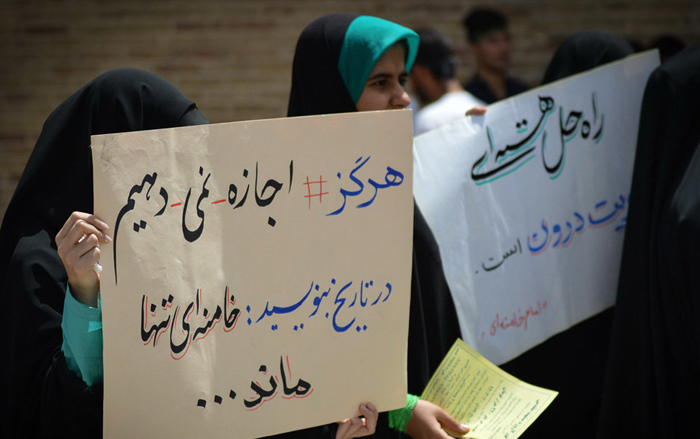 هرگز # اجازه-نمی-دهیم
در تاریخ بنویسید: خامنه‌ای تنها
ماند...
راه حل هسته‌ای
یت درون است.
"امام خامنه‌ای"